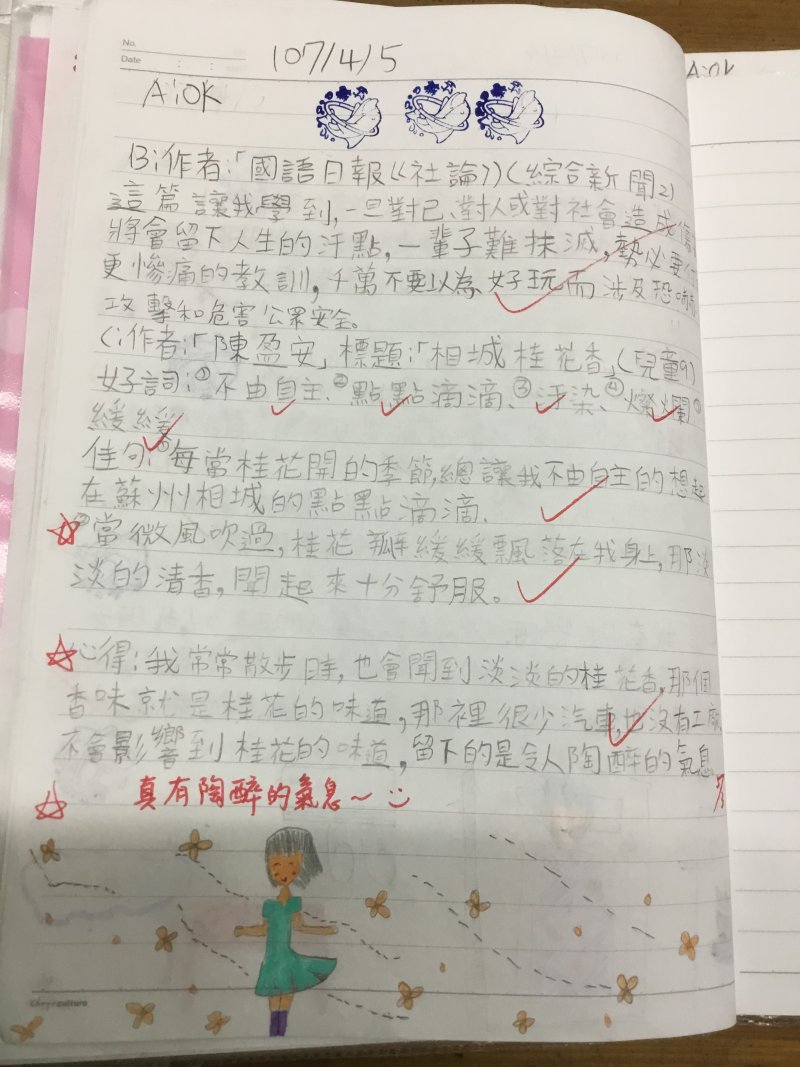 No.
Date : :
107/4/5
A:OK
A:OK
B:作者:「國語日報《社論》」(綜合新聞2)
這篇讓我學到,一旦對己、對人或對社會造成傷
將會留下人生的汙點,一輩子難抹滅,勢必要付
更慘痛的教訓,千萬不要以為好玩而涉及恐嚇
攻擊和危害公眾安全。
C:作者:「陳盈安」標題:「相城桂花香」(兒童9)
好詞:①不由自主、②點點滴滴、③汙染、④燦爛
緩緩
佳句:①每當桂花開的季節,總讓我不由自主的想起
在蘇州相城的點點滴滴.
②當微風吹過,桂花瓣緩緩飄落在我身上,那淡
淡的清香,聞起來十分舒服。
心得:我常常散步時,也會聞到淡淡的桂花香,那個
香味就是桂花的味道,那裡很少汽車,也沒有工廠
不會影響到桂花的味道,留下的是令人陶醉的氣息
真有陶醉的氣息~